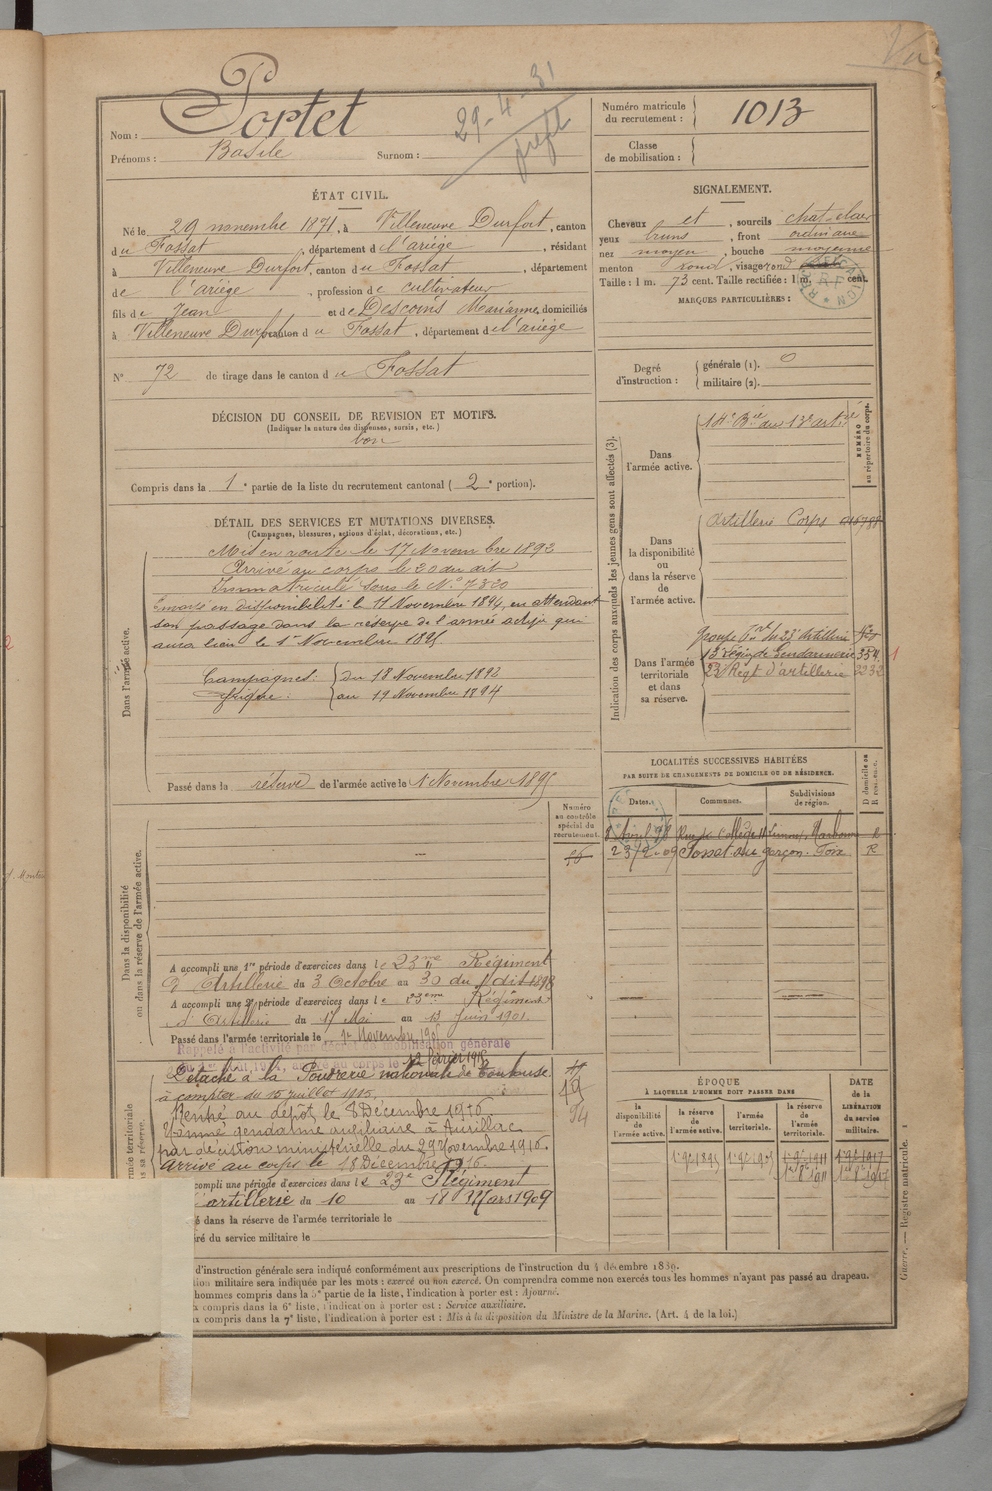 Vu
Nom : Portet
Prénoms : Basile Surnom :
29-4-31
Numéro matricule du recrutement : 1013
Classe de mobilisation :
ÉTAT CIVIL.
Né le 29 novembre 1871, à Villeneuve Durfort, canton
du Fossat, département d l'ariége, résidant
à Villeneuve Durfort, canton du Fossat, département
de l'ariége, profession de cultivateur
fils de Jean et de Descoins Marianne, domiciliés
à Villeneuve Durfort canton du Fossat, département d l'ariége
N° 72 de tirage dans le canton du Fossat
SIGNALEMENT.
Cheveux et, sourcils chat-clair
yeux bruns, front ordinaire
nez moyen, bouche moyenne
menton rond, visage rond
Taille : 1 m. 73 cent. Taille rectifiée : 1 m. cent.
MARQUES PARTICULIÈRES :
Degré d'instruction : générale (1). 0
militaire (2).
DÉCISION DU CONSEIL DE REVISION ET MOTIFS.
(Indiquer la nature des dispenses, sursis, etc.)
bon
Compris dans la 1e partie de la liste du recrutement cantonal ( 2e portion).
DÉTAIL DES SERVICES ET MUTATIONS DIVERSES.
(Campagnes, blessures, actions d'éclat, décorations, etc.)
Dans l'armée active.
Mis en route le 17 Novembre 1892
Arrivé au corps le 20 du dit
Immatriculé sous le N° 7320
Envoyé en disponibilité le 11 Novembre 1894, en attendant
son passage dans la réserve de l'armée active qui
aura lieu le 1er Novembre 1895
Campagnes : Du 18 Novembre 1892
Afrique : au 19 Novembre 1894
Passé dans la réserve de l'armée active le 1er Novembre 1895
Indication des corps auxquels les jeunes gens sont affectés (3).
NUMÉRO au répertoire du corps.
Dans l'armée active.
14e Bie du 13e artie
Dans la disponibilité ou dans la réserve de l'armée active.
Artillerie Corps
Dans l'armée territoriale et dans sa réserve.
Groupe Tal du 23e Artillerie
13e Légion de Gendarmerie 354
23 Régt d'artillerie 2232
LOCALITÉS SUCCESSIVES HABITÉES
PAR SUITE DE CHANGEMENTS DE DOMICILE OU DE RÉSIDENCE.
Dates. Communes. Subdivisions de région. D domicile ou R résidence.
8 Avril 98 Rue du Collège 11 Limoux, Narbonne R
23/2-09 Fossat Foix R
Numéro au contrôle spécial du recrutement.
Dans la disponibilité ou dans la réserve de l'armée active.
A accompli une 1re période d'exercices dans le 23me Régiment
d'Artillerie du 3 Octobre au 30 du dit 1898
A accompli une 2e période d'exercices dans le 23eme Régiment
d'Artillerie du 17 Mai au 13 Juin 1901.
Passé dans l'armée territoriale le 1er Novembre 1905
Rappelé à l'activité par décret de mobilisation générale
du 1er Août 1914, arrivé au corps le 12 février 1915
Détaché à la Poudrerie nationale de Toulouse
à compter du 15 juillet 1915.
Rentré au dépôt le 8 Décembre 1916
Nommé gendarme auxiliaire à Aurillac
par décision ministérielle du 29 Novembre 1916.
Arrivé au corps le 18 Décembre 1916.
94
compli une période d'exercices dans le 23e Régiment
d'artillerie du 10 au 18 Mars 1909
é dans la réserve de l'armée territoriale le
ré du service militaire le
ÉPOQUE
À LAQUELLE L'HOMME DOIT PASSER DANS
DATE de la LIBÉRATION du service militaire.
la disponibilité de l'armée active. la réserve de l'armée active. l'armée territoriale. la réserve de l'armée territoriale.
1er 9bre 1895 1er 9bre 1905 1er 9bre 1911 1er 9bre 1917
1er 8bre 1911 1er 8bre 1917
d'instruction générale sera indiqué conformément aux prescriptions de l'instruction du 4 décembre 1889.
tion militaire sera indiquée par les mots : exercé ou non exercé. On comprendra comme non exercés tous les hommes n'ayant pas passé au drapeau.
hommes compris dans la 5e partie de la liste, l'indication à porter est : Ajourné.
x compris dans la 6e liste, l'indication à porter est : Service auxiliaire.
ux compris dans la 7e liste, l'indication à porter est : Mis à la disposition du Ministre de la Marine. (Art. 4 de la loi.)
Guerre. — Registre matricule. 1